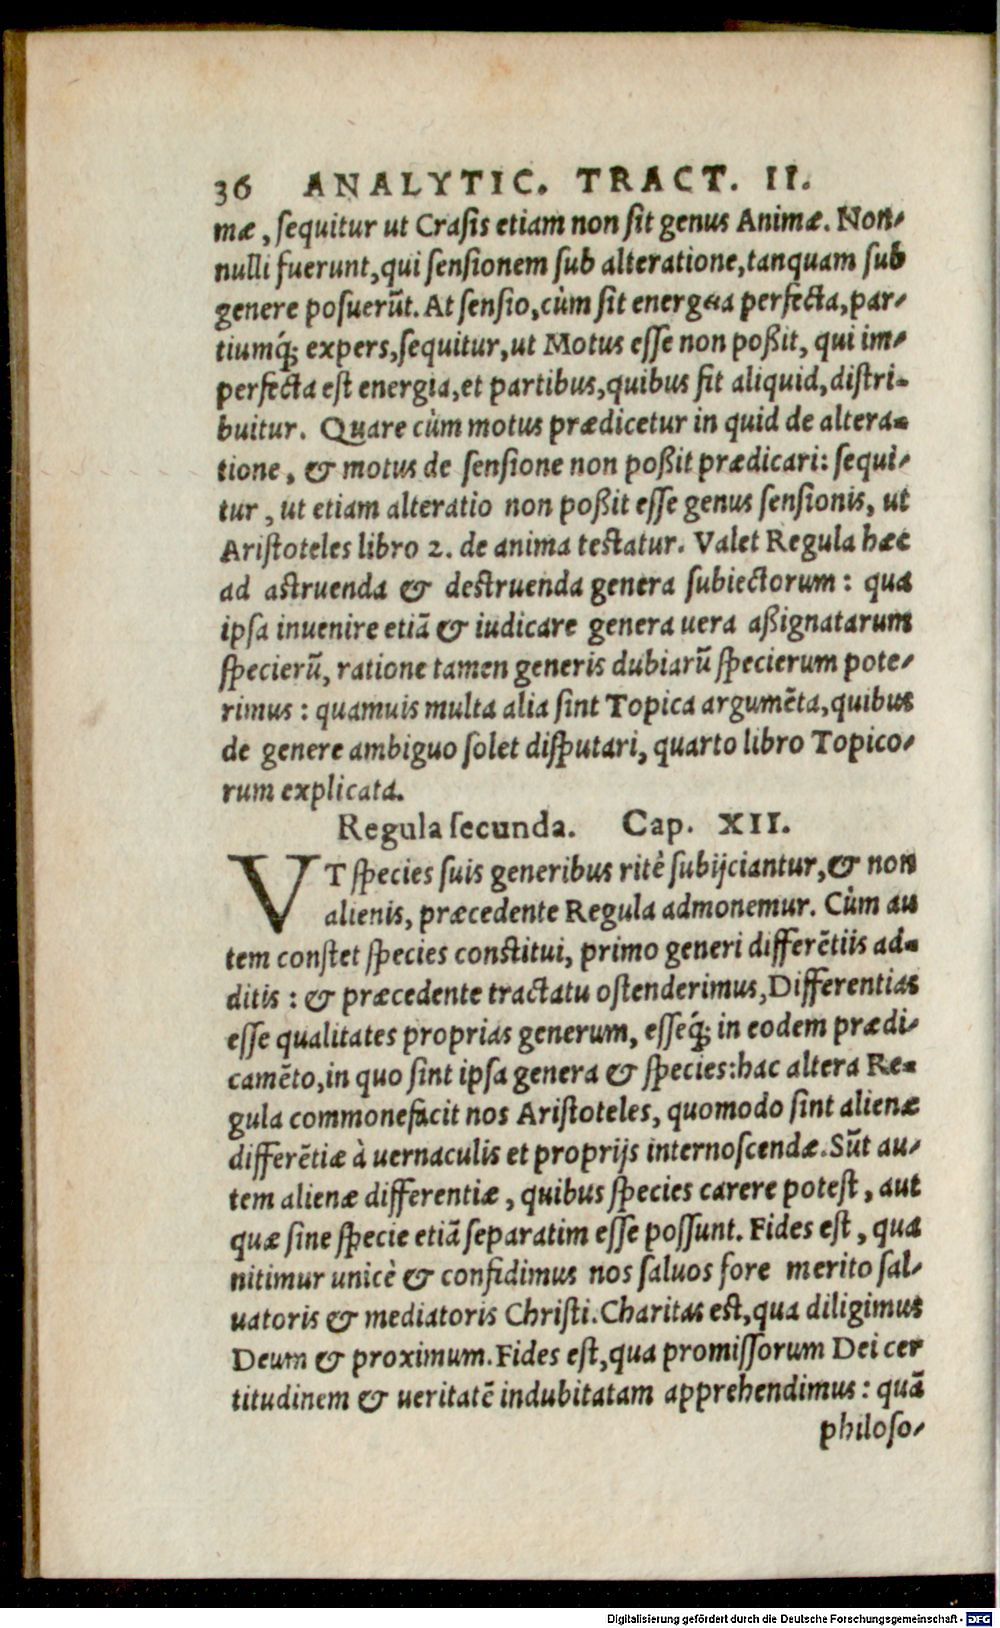 36 ANALYTIC. TRACT. II.
mæ, sequitur ut Crasis etiam non sit genus Animæ. Non-
nulli fuerunt, qui sensionem sub alteratione, tanquam sub
genere posuerūt. At sensio, cùm sit energeia perfecta, par-
tiumq́; expers, sequitur, ut Motus esse non poßit, qui im-
perfecta est energia, et partibus, quibus fit aliquid, distri-
buitur. Quare cùm motus prædicetur in quid de altera-
tione, & motus de sensione non poßit prædicari: sequi-
tur, ut etiam alteratio non poßit esse genus sensionis, ut
Aristoteles libro 2. de anima testatur. Valet Regula hæc
ad astruenda & destruenda genera subiectorum: qua
ipsa inuenire etiā & iudicare genera uera aßignatarum
specierū, ratione tamen generis dubiarū specierum pote-
rimus: quamuis multa alia sint Topica argumēta, quibus
de genere ambiguo solet disputari, quarto libro Topico-
rum explicata.
Regula secunda. Cap. XII.
VT species suis generibus ritè subijciantur, & non
alienis, præcedente Regula admonemur. Cùm au
tem constet species constitui, primo generi differētiis ad-
ditis: & præcedente tractatu ostenderimus, Differentias
esse qualitates proprias generum, esseq́; in eodem prædi-
camēto, in quo sint ipsa genera & species: hac altera Re-
gula commonefacit nos Aristoteles, quomodo sint alienæ
differētiæ à uernaculis et proprijs internoscendæ. Sūt au-
tem alienæ differentiæ, quibus species carere potest, aut
quæ sine specie etiā separatim esse possunt. Fides est, qua
nitimur unicè & confidimus nos saluos fore merito sal-
uatoris & mediatoris Christi. Charitas est, qua diligimus
Deum & proximum. Fides est, qua promissorum Dei cer
titudinem & ueritatē indubitatam apprehendimus: quā
philoso-
Digitalisierung gefördert durch die Deutsche Forschungsgemeinschaft - DFG